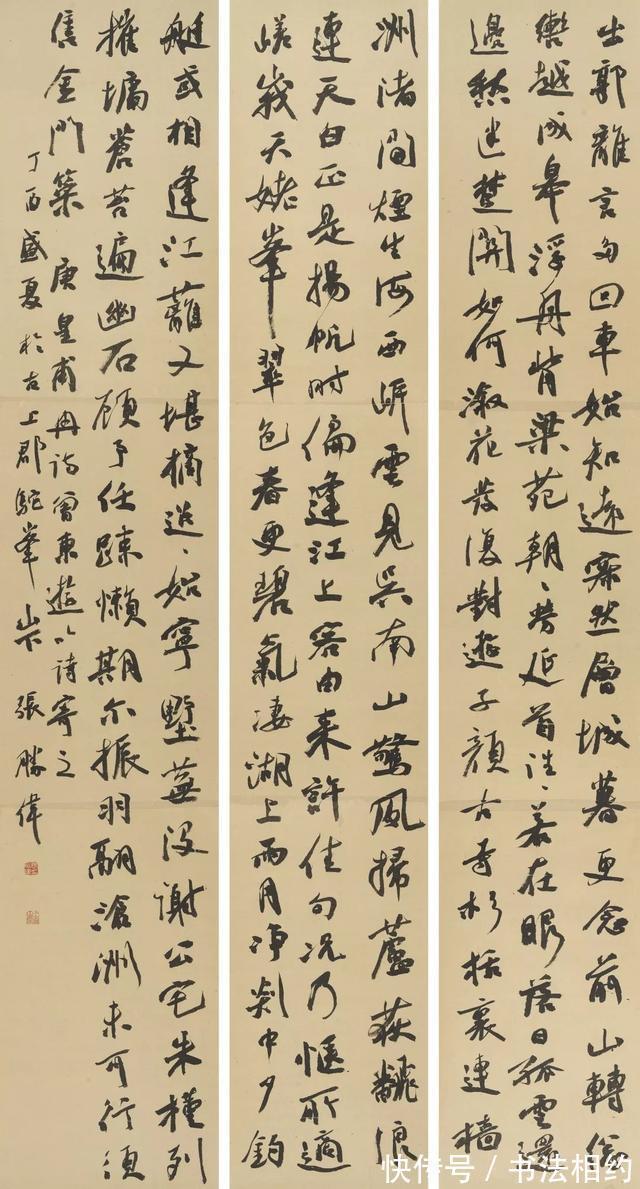 出郭離言多回車始知遠寂然層城暮更念前山轉總
轡越成皋浮舟背梁苑朝々勞延首往々若在眼落日孤雲還
邊愁迷楚關如何溆花發復對遊子顏古寺杉栝裏連檣
洲渚間煙生海西岸雲見吳南山驚風掃蘆荻翻浪
連天白正是揚帆時偏逢江上客由來許佳句況乃愜所適
嵯峨天姥峯翠色春更碧氣淒湖上雨月淨剡中夕釣
艇或相逢江蘺又堪摘迢々始寧墅蕪沒謝公宅朱槿列
摧墉蒼苔遍幽石顧予任疎懶期尔振羽翮滄洲未可行須
售金門策 唐皇甫冉詩曾東遊以詩寄之
丁酉盛夏於古上郡駝峯山下 張勝偉
快传号/书法相约